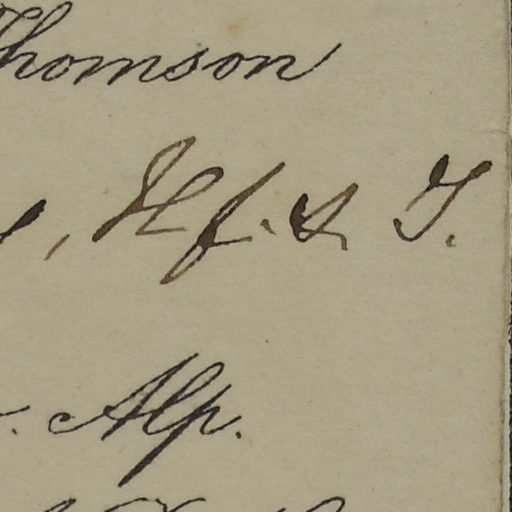 Thomson
, Hf. & T.
. Alp.